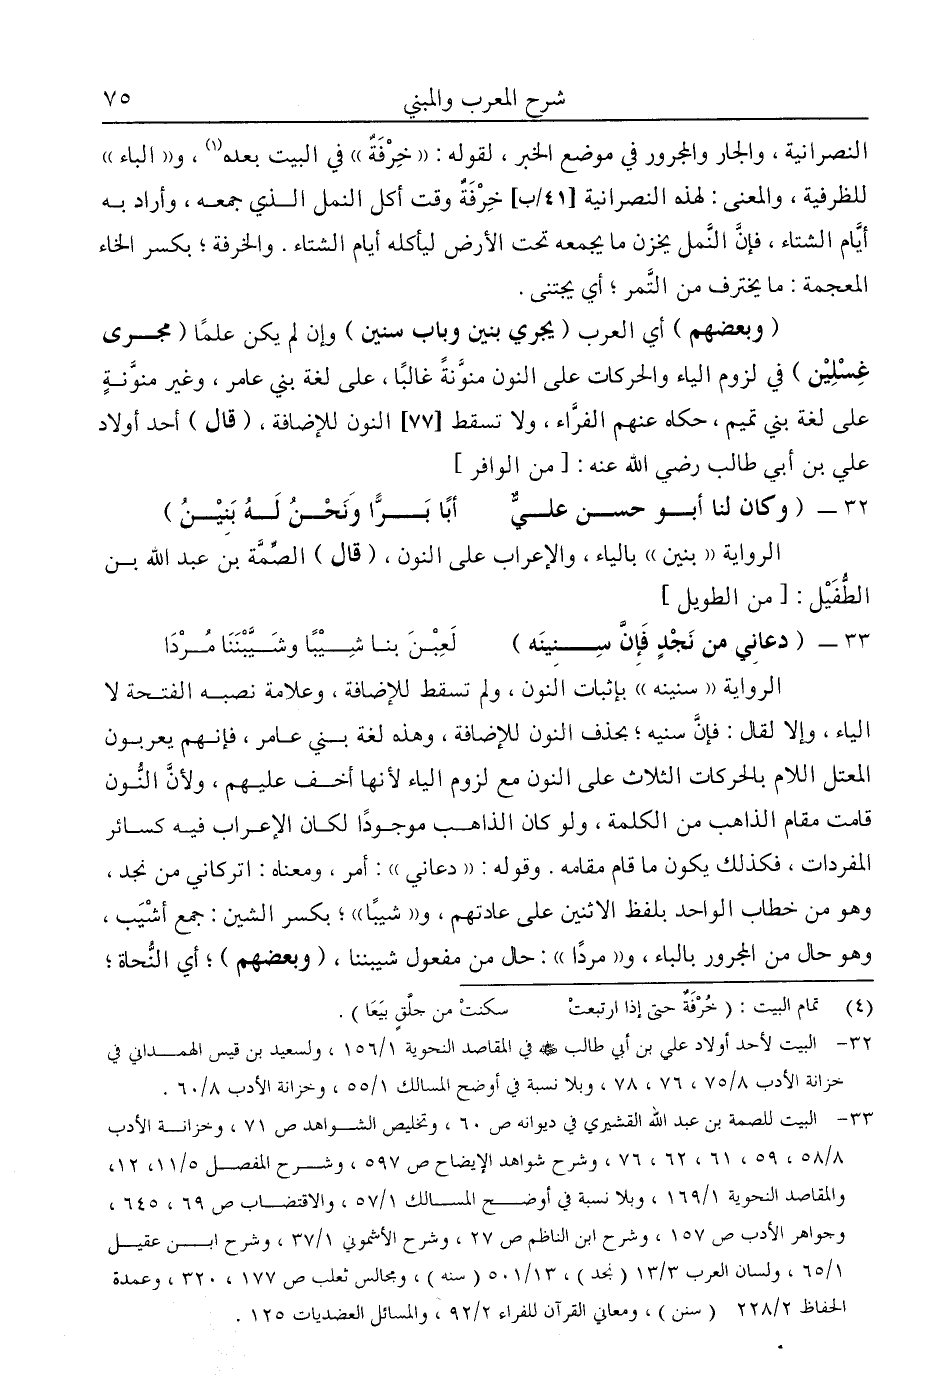 شرح المعرب والمبني ٧٥
النصرانية ، والجار والمجرور في موضع الخبر ، لقوله : (( خِرْفَةٌ )) في البيت بعده(١) ، و(( الباء ))
للظرفية ، والمعنى : لهذه النصرانية [٤١/ب] خِرْفَةٌ وقت أكل النمل الـذي جمعه ، وأراد بـه
أيَّام الشتاء ، فإنَّ النَّمل يخزن ما يجمعه تحت الأرض ليأكله أيام الشتاء . والخرفة ؛ بكسر الخاء
المعجمة : ما يخترف من التَّمر ؛ أي يجتنى .
( وبعضهم ) أي العرب ( يجري بنين وباب سنين ) وإن لم يكن علمًا ( مجـرى
غِسْلِيْن ) في لزوم الياء والحركات على النون منوَّنةً غالبًا ، على لغة بني عامر ، وغير منوَّنـةٍ
على لغة بني تميم ، حكاه عنهم الفرَّاء ، ولا تسقط [٧٧] النون للإضافة ، ( قال ) أحد أولاد
علي بن أبي طالب رضي الله عنه : [ من الوافر ]
٣٢ ــ ( وكان لنا أبـو حسـن علـيٌّ أبًا بَـرًّا وَنَحْـنُ لَـهُ بَنِيْـنُ )
الرواية (( بنين )) بالياء ، والإعراب على النون ، ( قال ) الصِّمَّة بن عبد الله بـن
الطُّفَيْل : [ من الطويل ]
٣٣ ــ ( دعاني من نَجْدٍ فَإنَّ سِـنِينَه ) لَعِبْـنَ بنـا شِـيْبًا وشَـيَّبْنَنَا مُـرْدَا
الرواية (( سنينه )) بإثبات النون ، ولم تسقط للإضافة ، وعلامة نصبـه الفتحـة لا
الياء ، وإلا لقال : فإنَّ سنيه ؛ بحذف النون للإضافة ، وهذه لغة بـني عـامر ، فإنـهم يعربـون
المعتل اللام بالحركات الثلاث على النون مع لزوم الياء لأنها أخـف عليـهم ، ولأنَّ النُّـون
قامت مقام الذاهب من الكلمة ، ولو كان الذاهـب موجـودًا لكـان الإعـراب فيـه كسـائر
المفردات ، فكذلك يكون ما قام مقامه . وقوله : (( دعاني )) : أمر ، ومعناه : اتركاني من نجد ،
وهو من خطاب الواحد بلفظ الاثنين على عادتهم ، و(( شيبًا )) ؛ بكسر الشين : جمع أشْيَب ،
وهو حال من المجرور بالباء ، و(( مردًا )) : حال من مفعول شيبننا ، ( وبعضهم ) ؛ أي النُّحاة ؛
(٤) تمام البيت : ( خُرْفَةٌ حتى إذا ارتبعتْ سكنتْ من جلَّقٍ بِيَعَا ) .
٣٢- البيت لأحد أولاد علي بن أبي طالب ﷺ في المقاصد النحوية ١٥٦/١ ، ولسعيد بن قيس الهمـداني في
خزانة الأدب ٧٥/٨ ، ٧٦ ، ٧٨ ، وبلا نسبة في أوضح المسالك ٥٥/١ ، وخزانة الأدب ٦٠/٨ .
٣٣- البيت للصمة بن عبد الله القشيري في ديوانه ص ٦٠ ، وتخليص الشـواهد ص ٧١ ، وخزانـة الأدب
٥٨/٨ ، ٥٩ ، ٦١ ، ٦٢ ، ٧٦ ، وشرح شواهد الإيضاح ص ٥٩٧ ، وشـرح المفصـل ١١/٥ ، ١٢ ،
والمقاصد النحوية ١٦٩/١ ، وبلا نسبة في أوضـح المسـالك ٥٧/١ ، والاقتضـاب ص ٦٩ ، ٦٤٥ ،
وجواهر الأدب ص ١٥٧ ، وشرح ابن الناظم ص ٢٧ ، وشرح الأشموني ٣٧/١ ، وشرح ابـن عقيـل
٦٥/١ ، ولسان العرب ١٣/٣ ( نجد ) ، ٥٠١/١٣ ( سنه ) ، ومجالس ثعلب ص ١٧٧ ، ٣٢٠ ، وعمدة
الحفاظ ٢٢٨/٢ ( سنن ) ، ومعاني القرآن للفراء ٩٢/٢ ، والمسائل العضديات ١٢٥ .